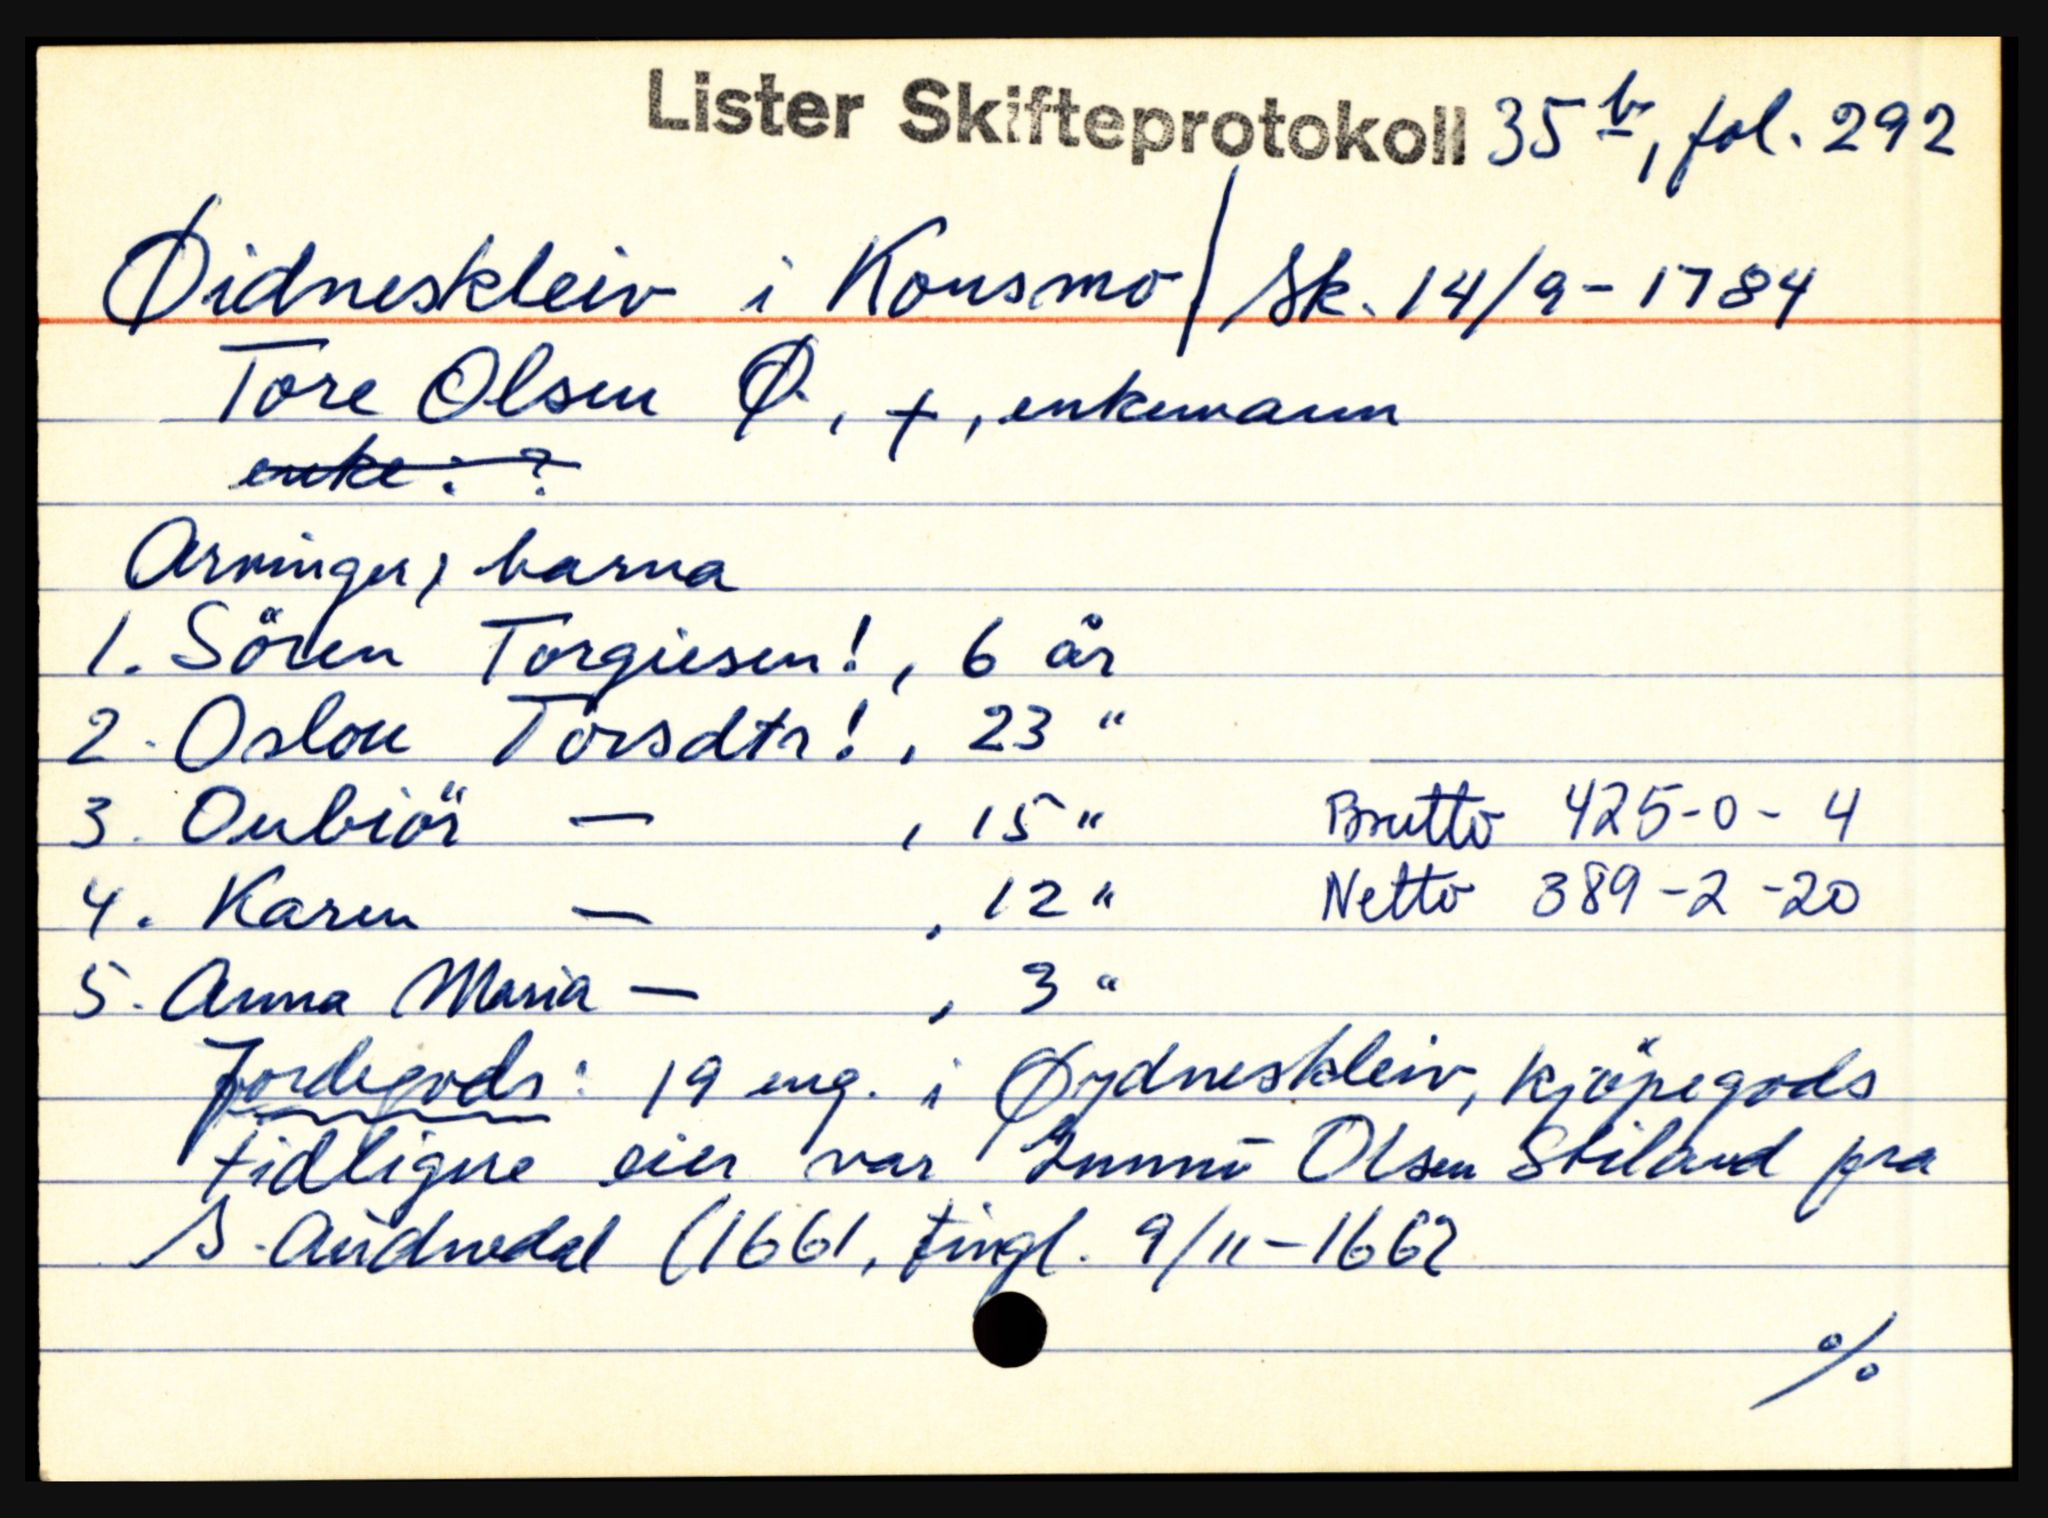 Lister Skifteprotokoll 35 b, fol. 292
Øidneskleiv i Konsmo / Sk. 14/9-1784
Tore Olsen Ø., +, enkemann
enke: ?
Arvinger, barna
1. Sören Torgiesen!, 6 år
2. Oslou Torsdtr!, 23 "
3. Oubiör —, 15 " Brutto 425-0-4
4. Karen —, 12 " Netto 389-2-20
5. Anna Maria —, 3 "
Jordegods: 19 eng. i Øydneskleiv, kjöpegods
tidligere eier var Olsen Skiland fra
S. Audnedal (1661, tingl. 9/11-1662
%